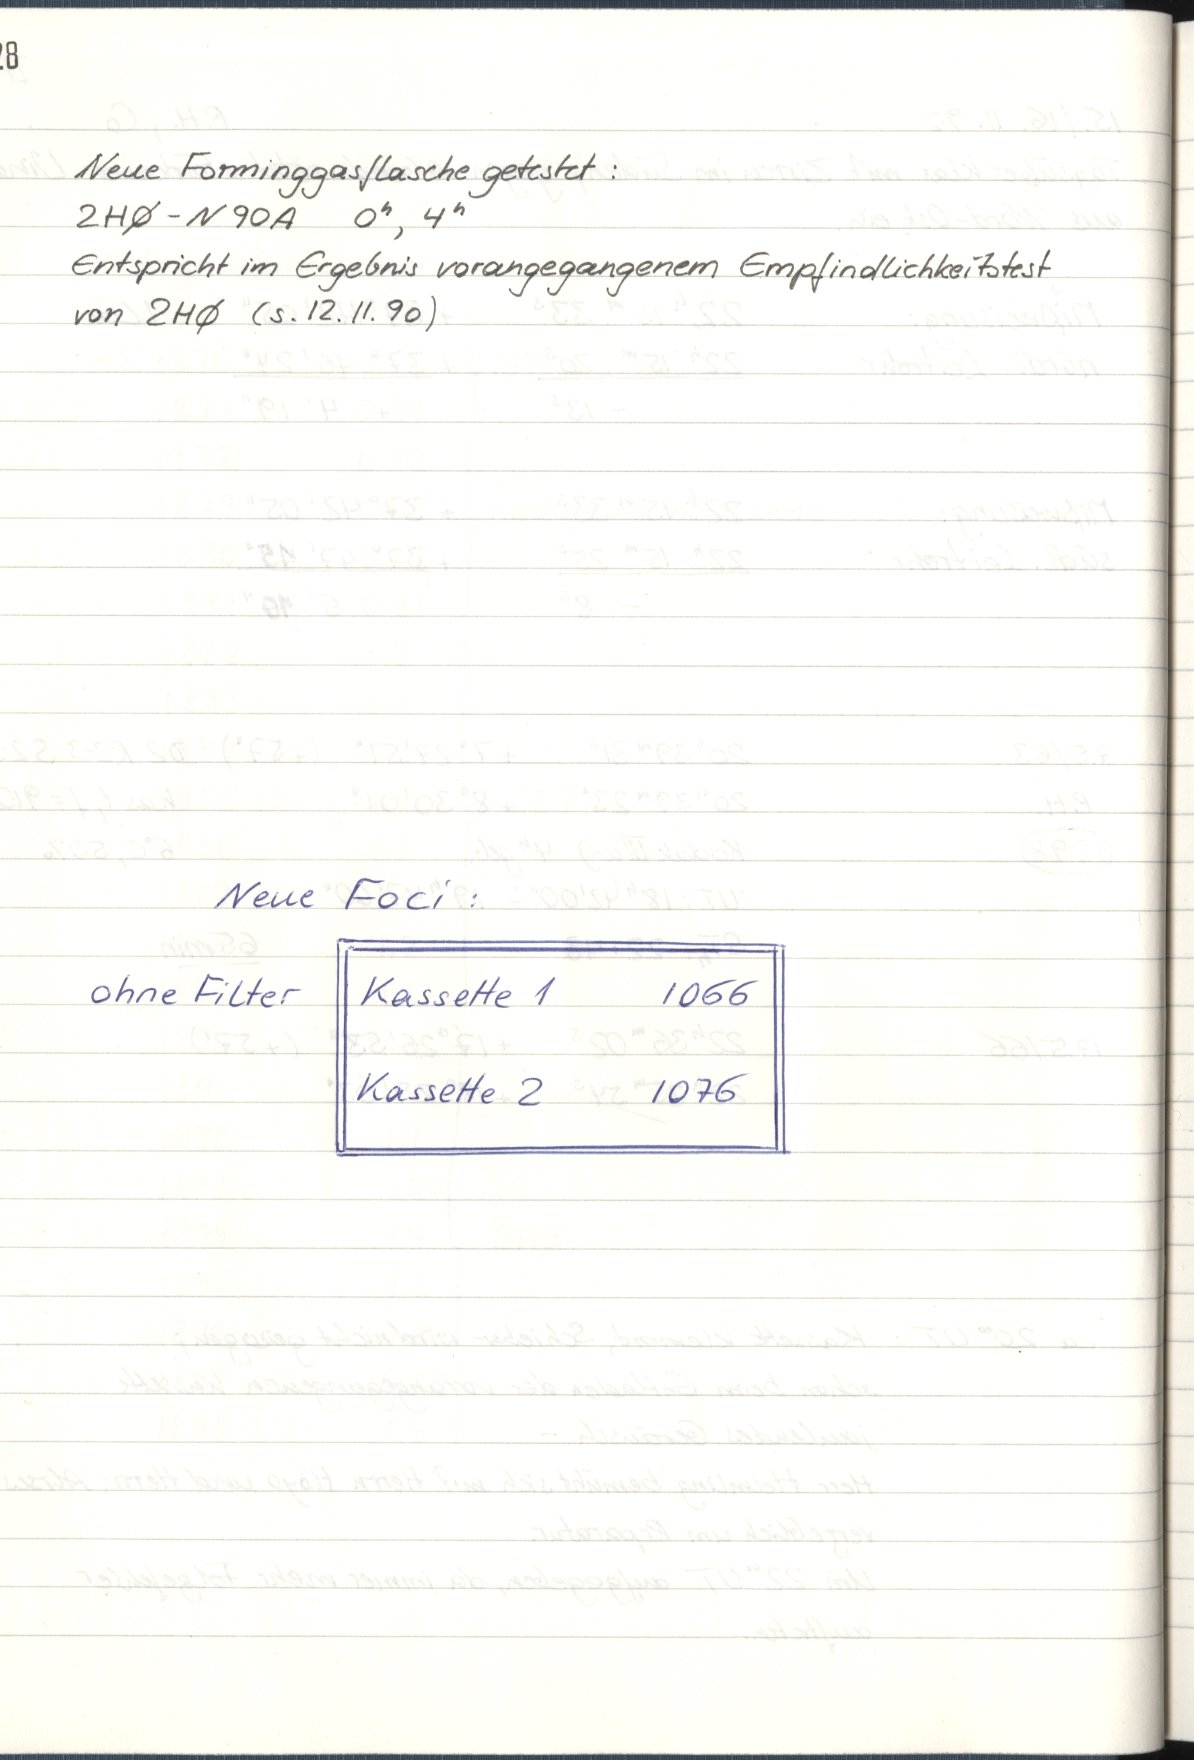 28
Neue Forminggasflasche getestet :
2HØ - N90A 0ʰ, 4ʰ
Entspricht im Ergebnis vorangegangenem Empfindlichkeitstest
von 2HØ (s. 12.11.90)
Neue Foci :
ohne Filter Kassette 1 1066
Kassette 2 1076